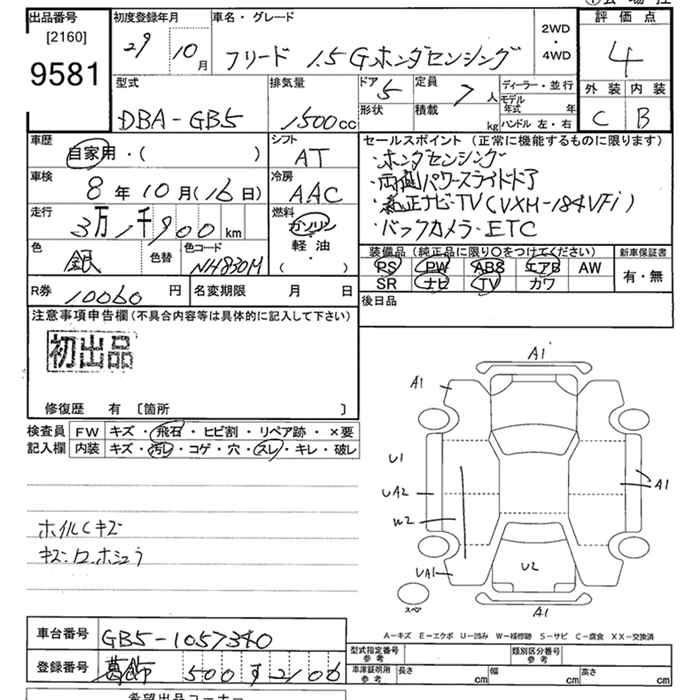 出品番号 初度登録年月 車名・グレード 評価点
[2160] 29 10月 フリード 1.5Gホンダセンシング 2WD・4WD 4
9581
型式 排気量 ドア 定員 ディーラー・並行 外装 内装
DBA-GB5 1500cc 5 7人 モデル年式 年 C B
形状 積載 kg ハンドル 左・右
車歴 シフト セールスポイント (正常に機能するものに限ります)
自家用・( ) AT ・ホンダセンシング
車検 冷房 ・両側パワースライドドア
8年10月(16日) AAC ・純正ナビ・TV(VXM-184VFi)
走行 燃料 ・バックカメラ・ETC
3万1千900km ガソリン
色 色替 色コード 軽油 装備品 (純正品に限り○をつけてください) 新車保証書
銀 NH830M ( ・ ) PS PW ABS エアB AW 有・無
SR ナビ TV カワ
R券 10060円 名変期限 月 日 後日品
注意事項申告欄(不具合内容等は具体的に記入して下さい)
初出品
修復歴 有 〔箇所 〕
検査員 FW キズ・飛石・ヒビ割・リペア跡・×要
記入欄 内装 キズ・汚レ・コゲ・穴・スレ・キレ・破レ
A1
A1
U1
UA2 A1
W2
UA1 U2
スペア A1
ホイルCキズ
A-キズ E-エクボ U-凹み W-補修跡 S-サビ C-腐食 XX-交換済
車台番号 GB5-1057340 型式指定番号 参考 類別区分番号 参考
登録番号 葛飾 500 す 2106 車庫証明用 参考 長さ cm 幅 cm 高さ cm
希望出品コーナー